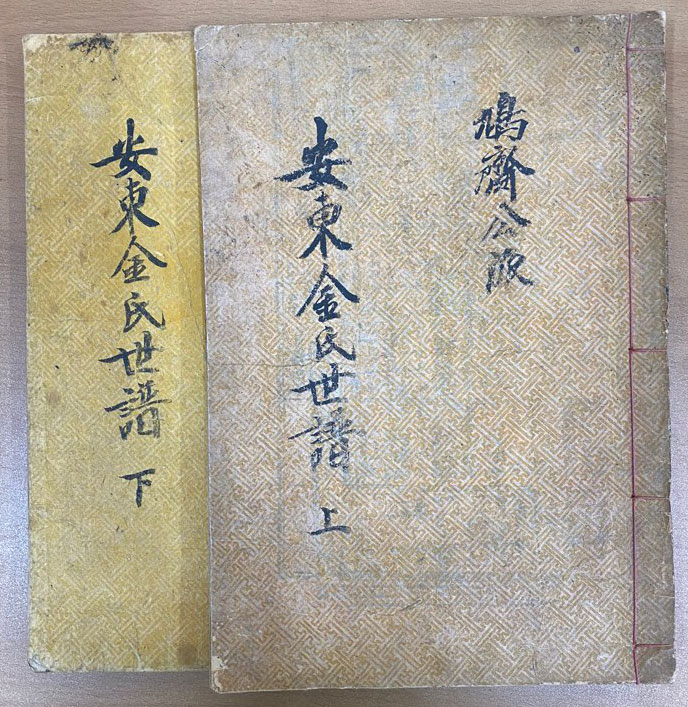 鳩齋公派
安東金氏世譜 上
安東金氏世譜 下